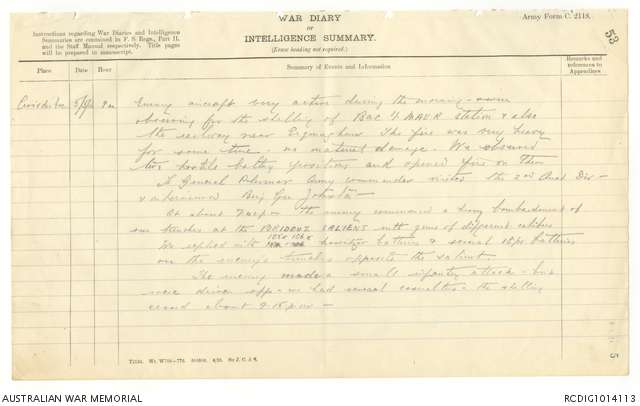 Army Form C. 2118.
WAR DIARY
OR
INTELLIGENCE SUMMARY.
(Erase heading not required.)
Instructions regarding War Diaries and Intelligence
Summaries are contained in F. S. Regs., Part II.
and the Staff Manual respectively. Title pages
will be prepared in manuscript.
53
Place Date Hour Summary of Events and Information Remarks and references to Appendices
Croix du Bac Enemy aircraft very active during the morning -
observing for the shelling of BAC St MAUR station & also
the railway near The fire was very heavy
for some time - no material damage. We observed
two hostile battery positions and opened fire on them
General Plumer Army commander visited the 2nd Aust Div -
& Brig Gen Johnston -
At about 7.40 pm the enemy commenced a heavy bombardment of
our trenches at the BRIDOUX SALIENT with guns of different calibres
We replied with howitzer batteries & several 18pr batteries
on the enemy's trenches opposite the salient.
The enemy made a small infantry attack - but
were driven off - we had several casualties - the shelling
ceased about 9.15 pm -
AUSTRALIAN WAR MEMORIAL
RCDIG1014113